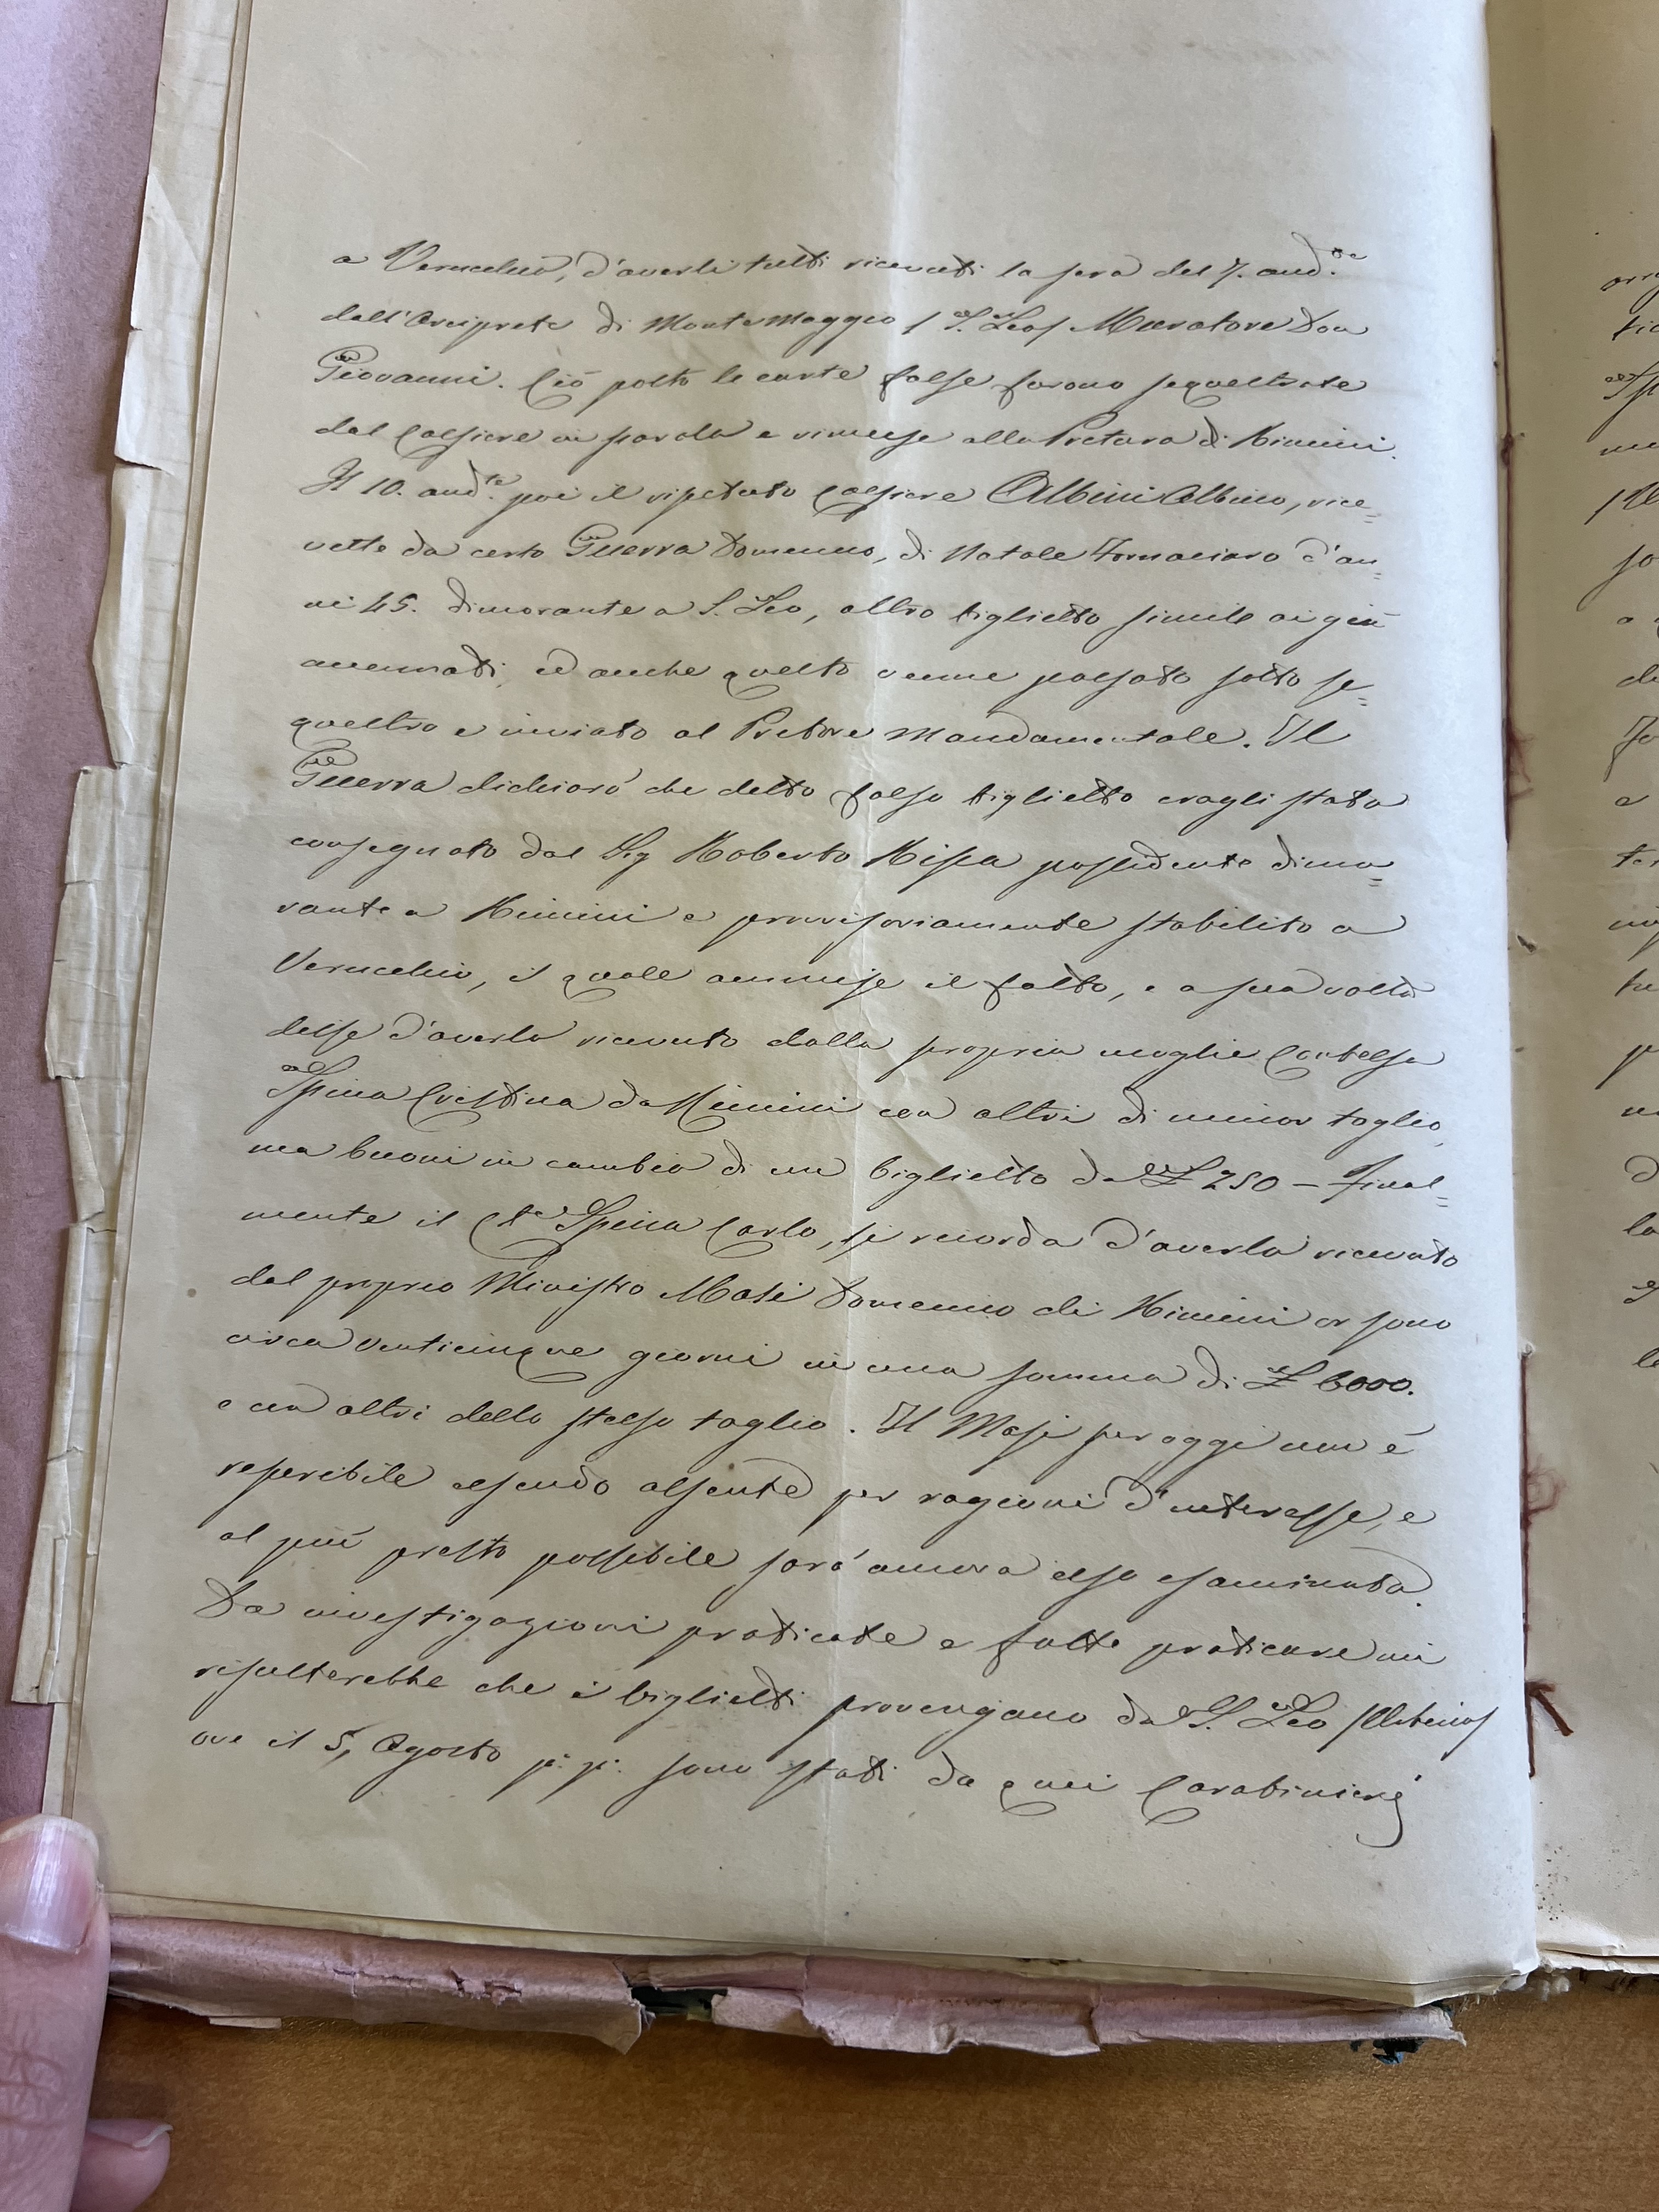 a Verucchio, d'averli tutti ricevuti la sera del 7. and.te
dall'Arciprete di Monte Maggio / S. Leo / Muratore Don
Giovanni. Ciò posto le carte false furono sequestrate
dal Cassiere in parola e rimesse alla Pretura di Rimini.
Il 10. and.te poi il ripetuto Cassiere Albini Albino, rice=
vette da certo Guerra Domenico, di Natale Fornaciaro d'an=
ni 45. dimorante a S. Leo, altro biglietto simile ai già
accennati, ed anche questo venne passato sotto se=
questro e inviato al Pretore Mandamentale. Il
Guerra dichiarò che detto falso biglietto eragli stato
consegnato dal Sig Roberto Ripa possidente dimo=
rante a Rimini e provvisoriamente stabilito a
Verucchio, il quale ammise il fatto, e a sua volta
disse d'averlo ricevuto dalla propria moglie Contessa
Spina Cristina da Rimini con altri di minor taglio,
ma buoni in cambio di un biglietto da £ 250 — Final=
mente il C.te Spina Carlo, si ricorda d'averlo ricevuto
dal proprio Ministro Masi Domenico di Rimini or sono
circa venticinque giorni in una somma di £ 6000.
e con altri dello stesso taglio. Il Masi per oggi non è
reperibile essendo assente per ragioni d'interesse, e
al più presto possibile sarà ancora esso esaminato.
Da investigazioni praticate e fatte praticare mi
risulterebbe che i biglietti provengano da S. Leo / Urbino /
ove il 5, Agosto p. p. sono stati da quei Carabinieri